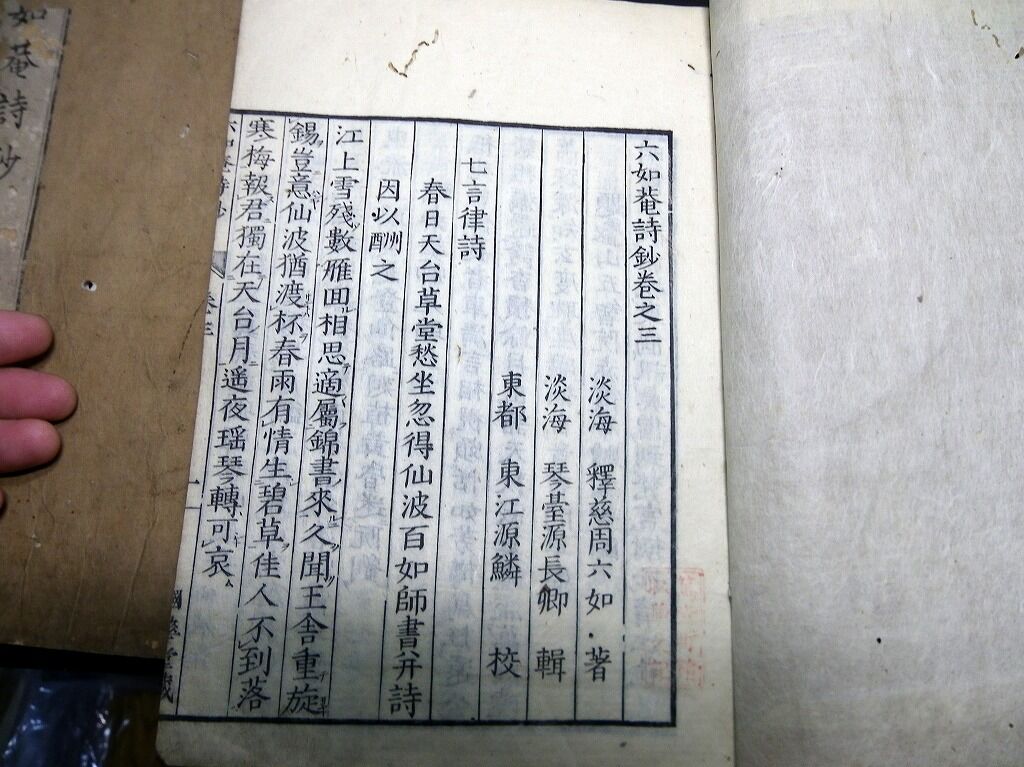 六如菴詩鈔卷之三
淡海 釋慈周六如 著
淡海 琴臺源長卿 輯
東都 東江源鱗 校
七言律詩
春日天台草堂愁坐忽得仙波百如師書并詩
因以酬之
江上雪殘數雁回相思適屬錦書來久聞王舎重旋
錫豈意仙波猶渡杯春雨有情生碧草佳人不到落
寒梅報君獨在天台月遥夜瑶琴轉可哀
如菴詩鈔